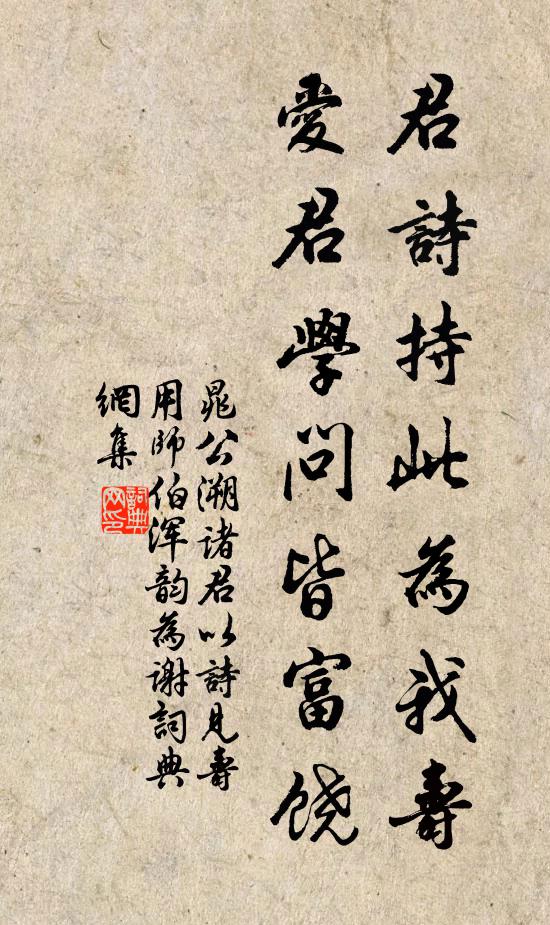 君詩持此為我壽
愛君學問皆富饶
晁公溯諸君以詩見壽
用師伯浑韵為谢詞典
網集
詞典
网印